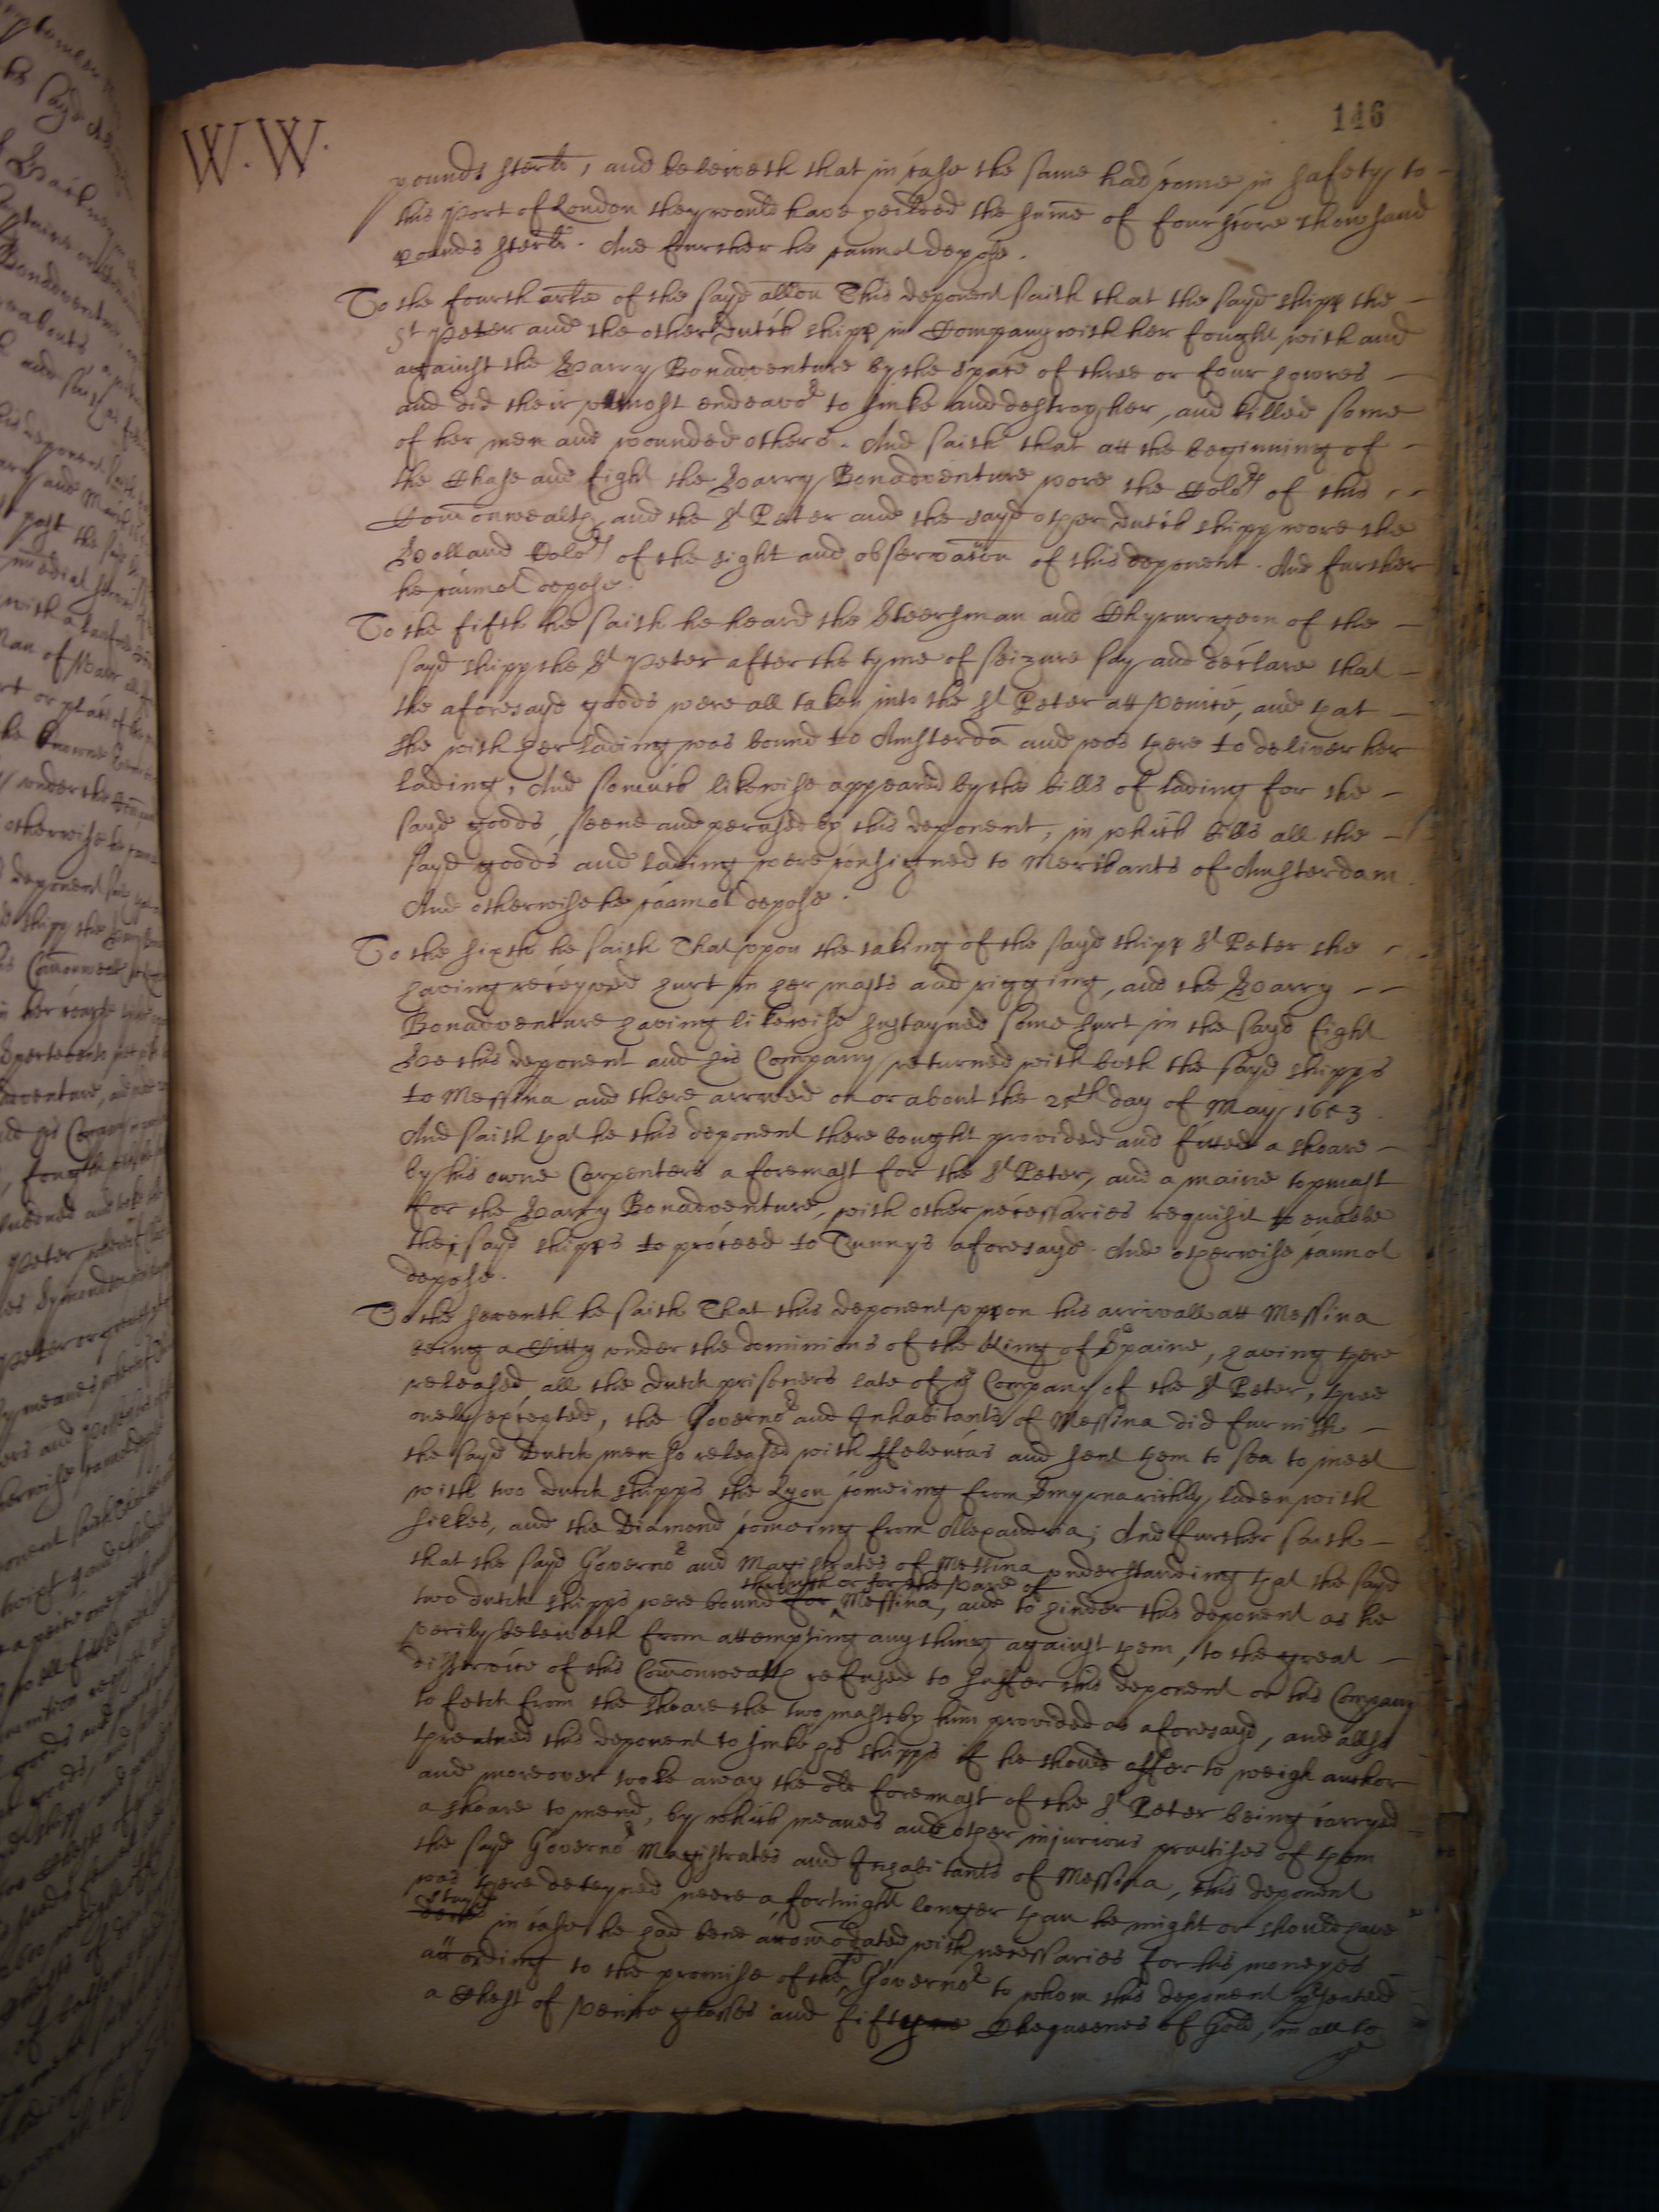 146
W.W.
pounds sterlr, and beleiveth that in case the same had come in safety to
this Port of London they would have yeilded the sume of fourscore thousand
pounds sterlr. And further he cannot depose.
To the fourth arle of the sayd allon This deponent saith that the sayd shipp the
St Peter and the other dutch shipp in Company with her fought with and
against the Harry Bonadventure by the space of three or four howres
and did their utmost endeavor to sinke and destroy her, and killed some
of her men and wounded others. And saith that att the beginning of
the Chase and fight the Harry Bonadventure wore the Colors of this
Comonwealth and the St Peter and the sayd other dutch shipp wore the
Holland Colors of the sight and observacon of this deponent. And further
he cannot depose.
To the fifth he saith he heard the Steersman and Chyrurgeon of the
sayd shipp the St Peter after the tyme of seizure say and declare that
the aforesayd goods were all taken into the St Peter att Venice, and that
she with her lading was bound to Amsterda and was there to deliver her
lading, And somuch likewise appeared by the bills of lading for the
sayd goods, seene and perused by this deponent, in which bills all the
sayd goods and lading were consigned to Merchants of Amsterdam.
And otherwise he cannot depose.
To the sixth he saith That upon the taking of the sayd shipp St Peter she
having receyved hurt in her masts and rigging, and the Harry
Bonadventure having likewise sustayned some hurt in the sayd fight
Hee this deponent and his Company returned with both the sayd shipps
to Messina and there arrived on or about the 25th day of May 1653.
And saith that he this deponent there bought provided and fitted a shoare
by his owne Carpenters a foremast for the St Peter, and a maine topmast
for the Harry Bonadventure, with other necessaries requisit to enable
the sayd shipps to proceed to Tunnys aforesayd. And otherwise cannot
depose.
To the seventh he saith That this deponent uppon his arrivall att Messina
being a Citty under the dominions of the King of Spaine, having there
released all the dutch prisoners late of ye Company of the St Peter, three
onely excepted, the Governor and Inhabitants of Messina did furnish
the sayd Dutch men so released with ffeluccas and sent them to sea to meet
with two dutch shipps the Lyon comeing from Smyrna richly laden with
silkes, and the Diamond comeing from Alexandria; And further saith
that the sayd Governor and Magistrates of Messina understanding that the sayd
through or for the Vare of
two dutch shipps were bound for Messina, and to hinder this deponent as he
verily beleiveth from attempting any thing against them, to the great
disservice of this Comonwealth refused to suffer this deponent or his Company
to fetch from the shoare the two masts by him provided as aforesayd, and allso
threatned this deponent to sinke his shipps if he should offer to weigh anchor
and moreover tooke away the old foremast of the St Peter being carryed
a shoare to mend, by which meanes and other injurious practises of them
the sayd Governor Magistrates and Inhabitants of Messina, this deponent
was there deteyned neere a fortnight longer than he might or should have
stayd
done in case he had bene accomodated with necessaries for his moneyes
according to the promise of the sd Governor to whom this deponent psented
a Chest of Venice glasses and fifteene Chequeenes of Gold, in all to
ye